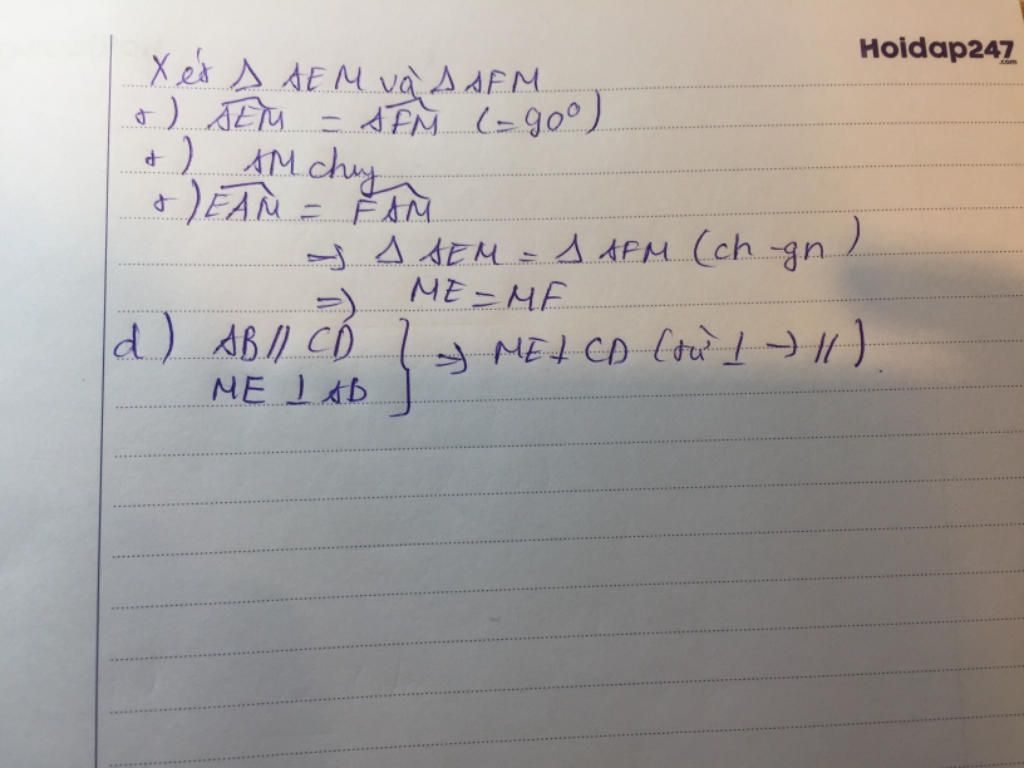 Hoidap247
.com
Xét Δ AEM và Δ AFM
+) AEM = AFM (= 90°)
+) AM chung
+) EAM = FAM
=> Δ AEM = Δ AFM (ch - gn)
=> ME = MF
d) AB // CD } => ME ⊥ CD (từ ⊥ → //).
ME ⊥ AB